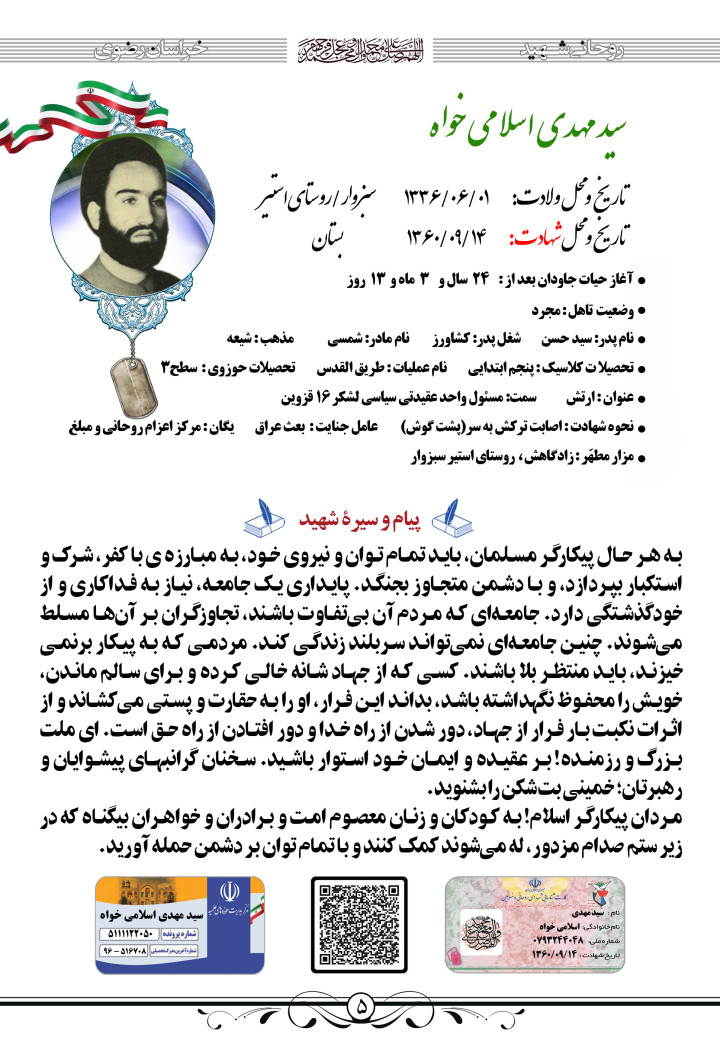 روحانی شهید
اللهم صل علی محمد و آل محمد و عجل فرجهم
خراسان رضوی
سید مهدی اسلامی خواه
تاریخ و محل ولادت: ۱۳۳۶/۰۶/۰۱ سبزوار/روستای استیر
تاریخ و محل شهادت: ۱۳۶۰/۰۹/۱۴ بستان
• آغاز حیات جاودان بعد از: ۲۴ سال و ۳ ماه و ۱۳ روز
• وضعیت تاهل: مجرد
• نام پدر: سید حسن شغل پدر: کشاورز نام مادر: شمسی مذهب: شیعه
• تحصیلات کلاسیک: پنجم ابتدایی نام عملیات: طریق القدس تحصیلات حوزوی: سطح۳
• عنوان: ارتش سمت: مسئول واحد عقیدتی سیاسی لشکر ۱۶ قزوین
• نحوه شهادت: اصابت ترکش به سر(پشت گوش) عامل جنایت: بعث عراق یگان: مرکز اعزام روحانی و مبلغ
• مزار مطهّر: زادگاهش، روستای استیر سبزوار
پیام و سیرهٔ شهید
به هر حال پیکارگر مسلمان، باید تمام توان و نیروی خود، به مبارزه ی با کفر، شرک و
استکبار بپردازد، و با دشمن متجاوز بجنگد. پایداری یک جامعه، نیاز به فداکاری و از
خودگذشتگی دارد. جامعه‌ای که مردم آن بی‌تفاوت باشند، تجاوزگران بر آن‌ها مسلط
می‌شوند. چنین جامعه‌ای نمی‌تواند سربلند زندگی کند. مردمی که به پیکار برنمی
خیزند، باید منتظر بلا باشند. کسی که از جهاد شانه خالی کرده و برای سالم ماندن،
خویش را محفوظ نگهداشته باشد، بداند این فرار، او را به حقارت و پستی می‌کشاند و از
اثرات نکبت بار فرار از جهاد، دور شدن از راه خدا و دور افتادن از راه حق است. ای ملت
بزرگ و رزمنده! بر عقیده و ایمان خود استوار باشید. سخنان گرانبهای پیشوایان و
رهبرتان؛ خمینی بت‌شکن را بشنوید.
مردان پیکارگر اسلام! به کودکان و زنان معصوم امت و برادران و خواهران بیگناه که در
زیر ستم صدام مزدور، له می‌شوند کمک کنند و با تمام توان بر دشمن حمله آورید.
نام: سید مهدی
نام خانوادگی: اسلامی خواه
شماره ملی: ۰۷۹۳۲۴۴۰۴۸
تاریخ شهادت: ۱۳۶۰/۰۹/۱۴
مرکز مدیریت حوزه‌های علمیه
سید مهدی اسلامی خواه
شماره پرونده ۵۱۱۱۱۲۲۰۵۰
شماره آخرین مدرک تحصیلی ۵۱۶۷۰۸ – ۹۶
۵